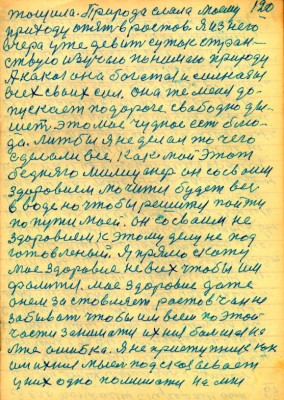 тощила. Природа слала моему 120
приходу опят в ростов. Я из него
вчера уже девит суток стран-
ствую изучаю понимаю природу
А какая она богатая и сильная
всех своих сил. Она же меня до-
пускает по дороге свободно ды-
шет. Это мае чудное ест блю-
да. Читбы я не делал то чего
сделали все, как мой этот
бедняга милиционер он со своим
здоровием мочити будет вег
в воде но чтобы решити пойти
по пути моей. Он со своим не
здоровием к этому делу не под
готовленый. Я прямо скажу
мае здоровие не всех чтобы им
фалити. мае здоровие даже
онем заставляет ростовчан не
забыват чтобы им всем по этой
части занимати их них балшая не
мне ошибка. Я не приступник как
им них мыел подсказывает
у них одно помишати на мни